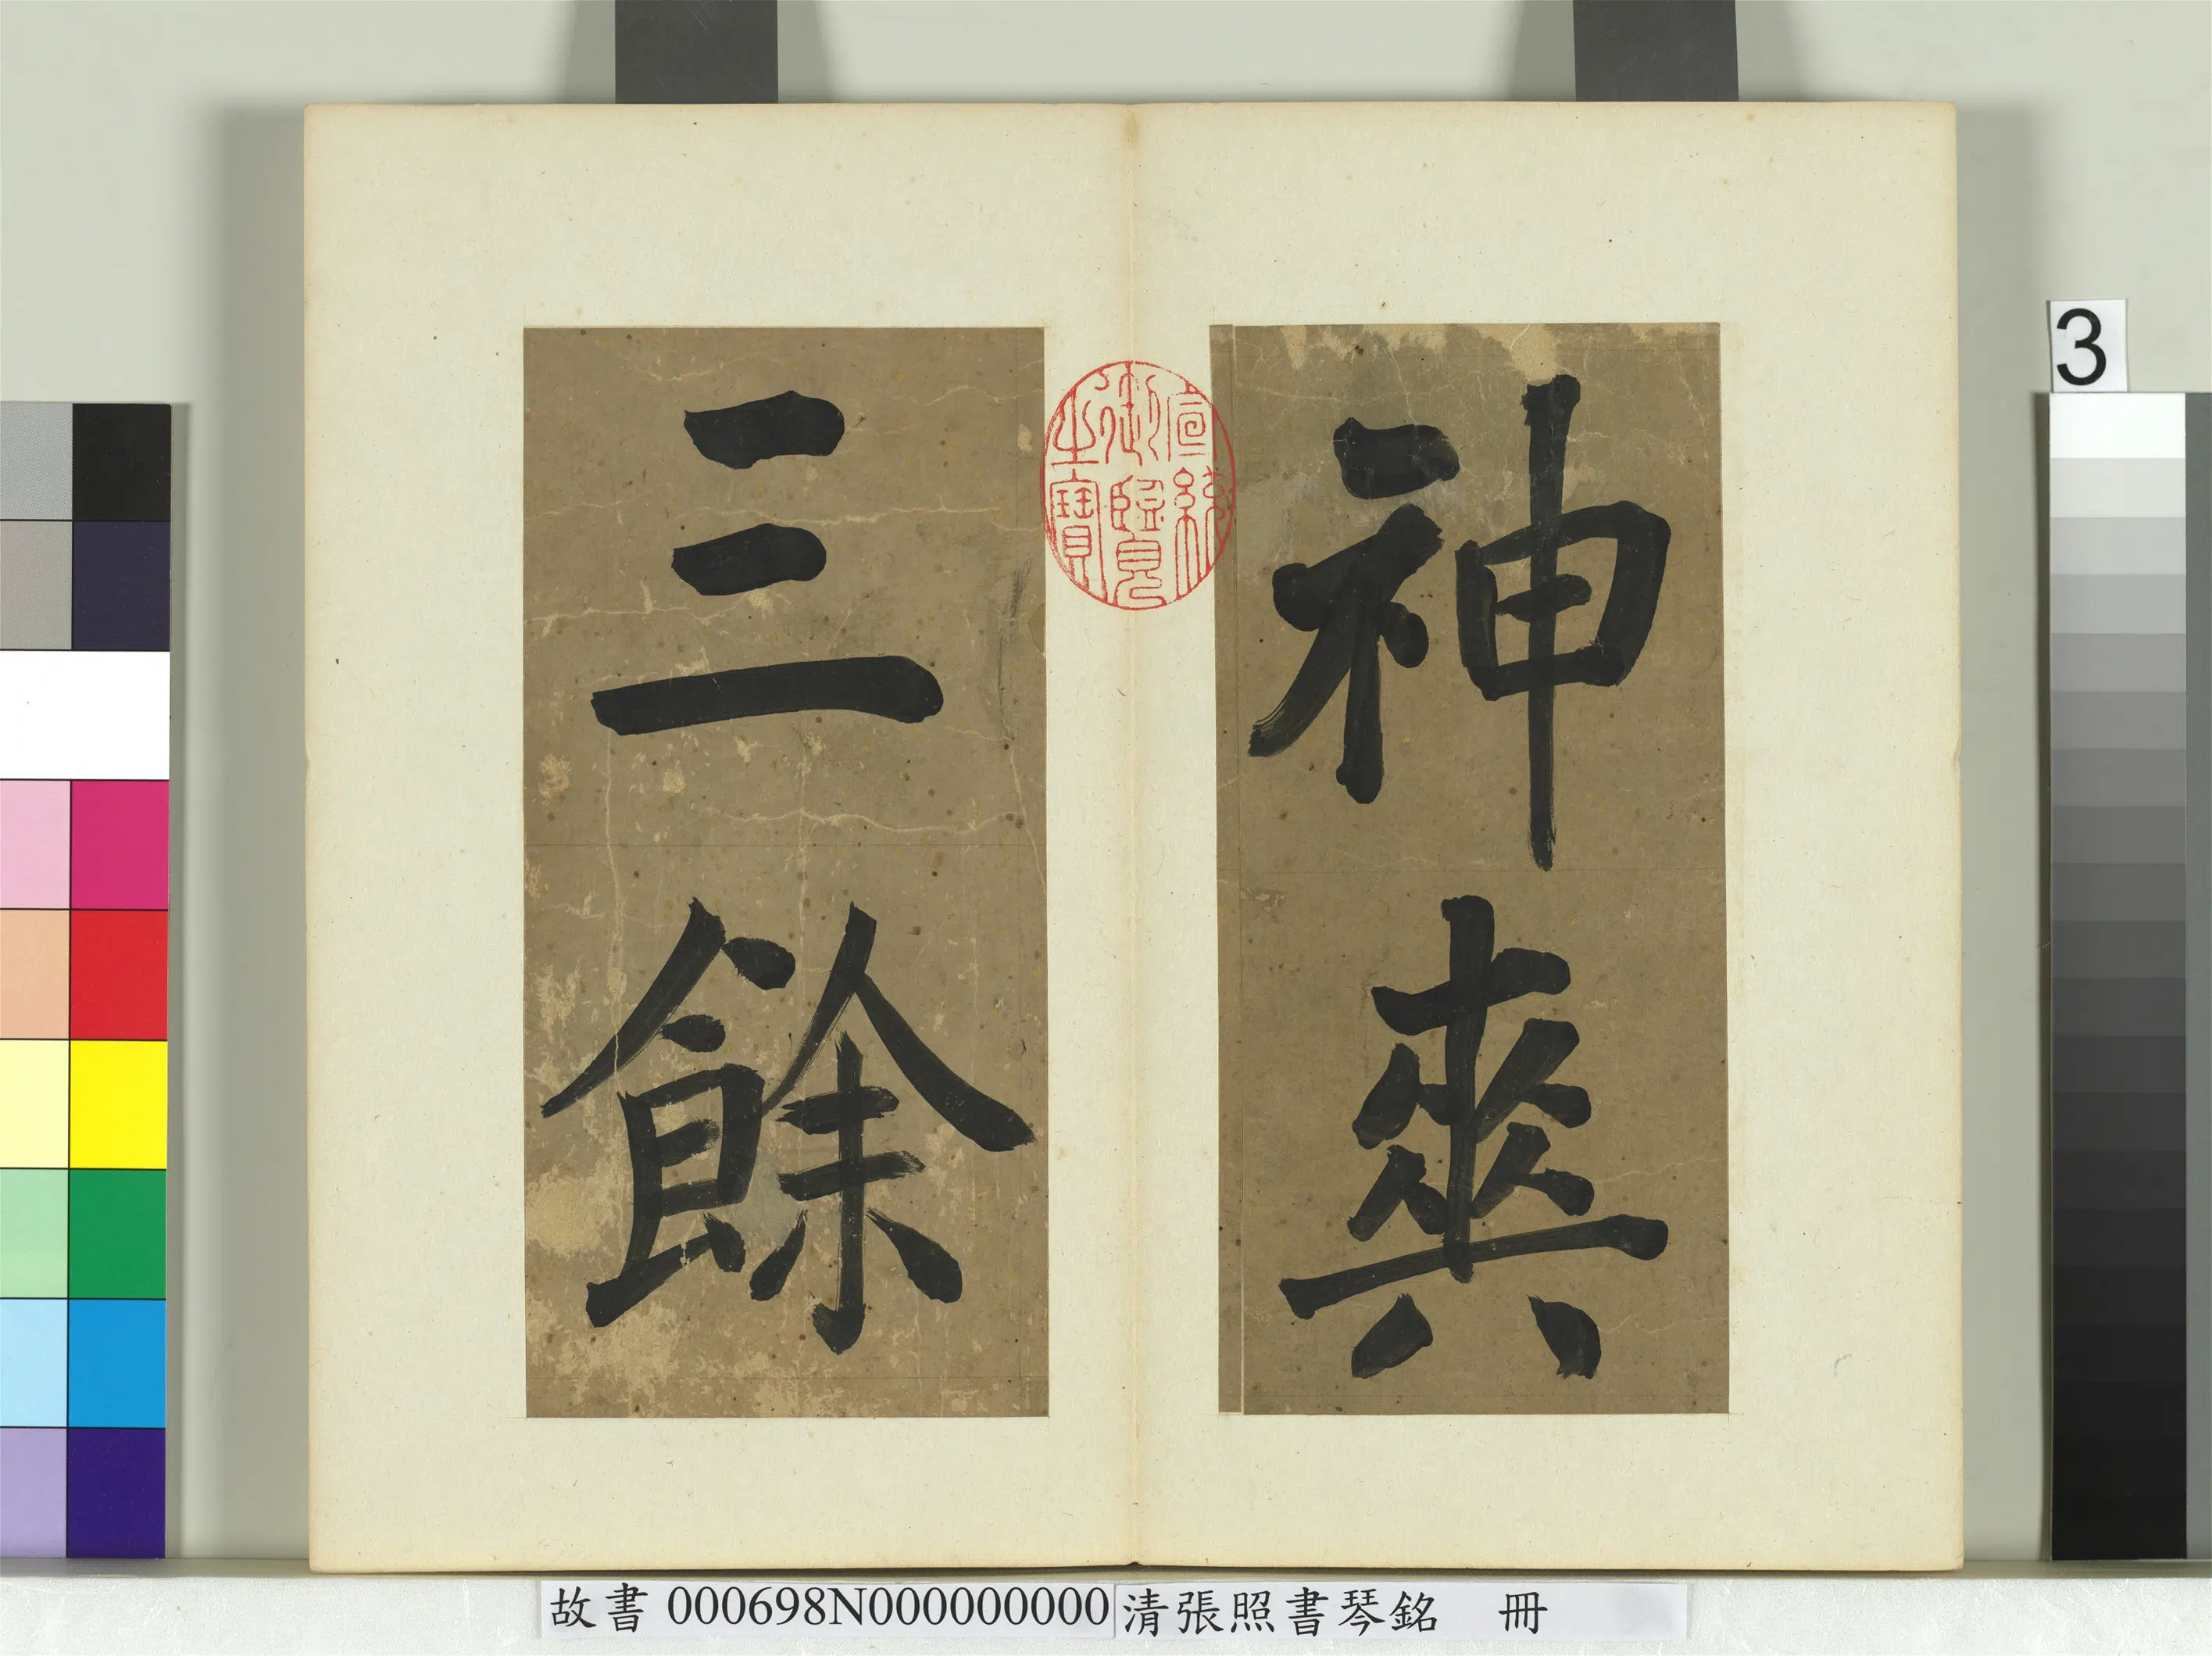 神爽
三餘
宣統
御覽
之寶
3
故書 000698N000000000 清張照書琴銘 冊